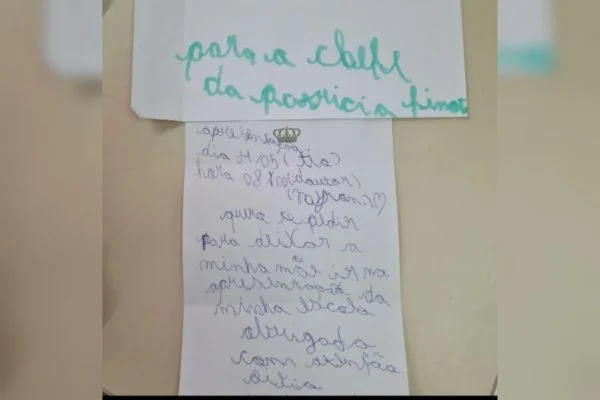 para a chefe
da possricia
apresentação
dia 21/05 (tia)
hora 08:00 (dautor)
quera te pedir
para deixar a
minha mãe ir na
apresentação da
minha escola
obrigada
com atenção